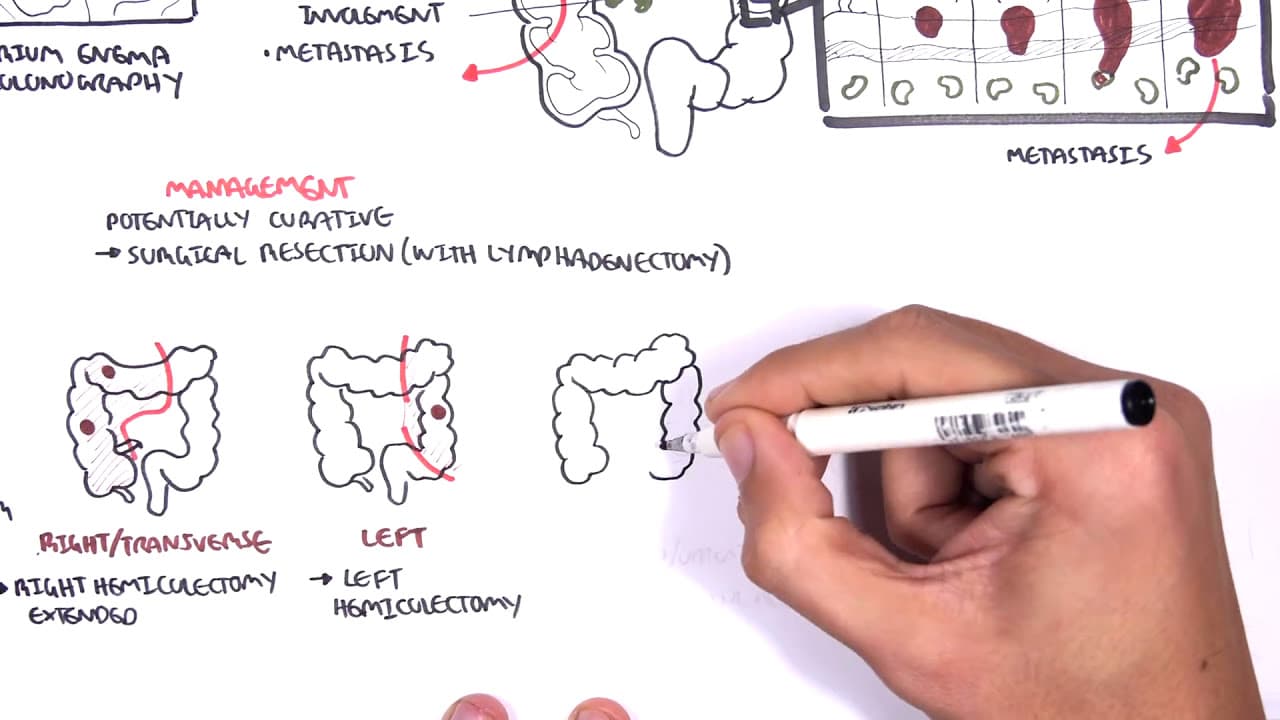 INVOLEMENT
• METASTASIS
RIUM ENEMA
OLONOGRAPHY
METASTASIS
MANAGEMENT
POTENTIALLY CURATIVE
→ SURGICAL RESECTION (WITH LYMPHADENECTOMY)
RIGHT/TRANSVERSE
LEFT
→ RIGHT HEMICOLECTOMY
EXTENDED
→ LEFT
HEMICOLECTOMY